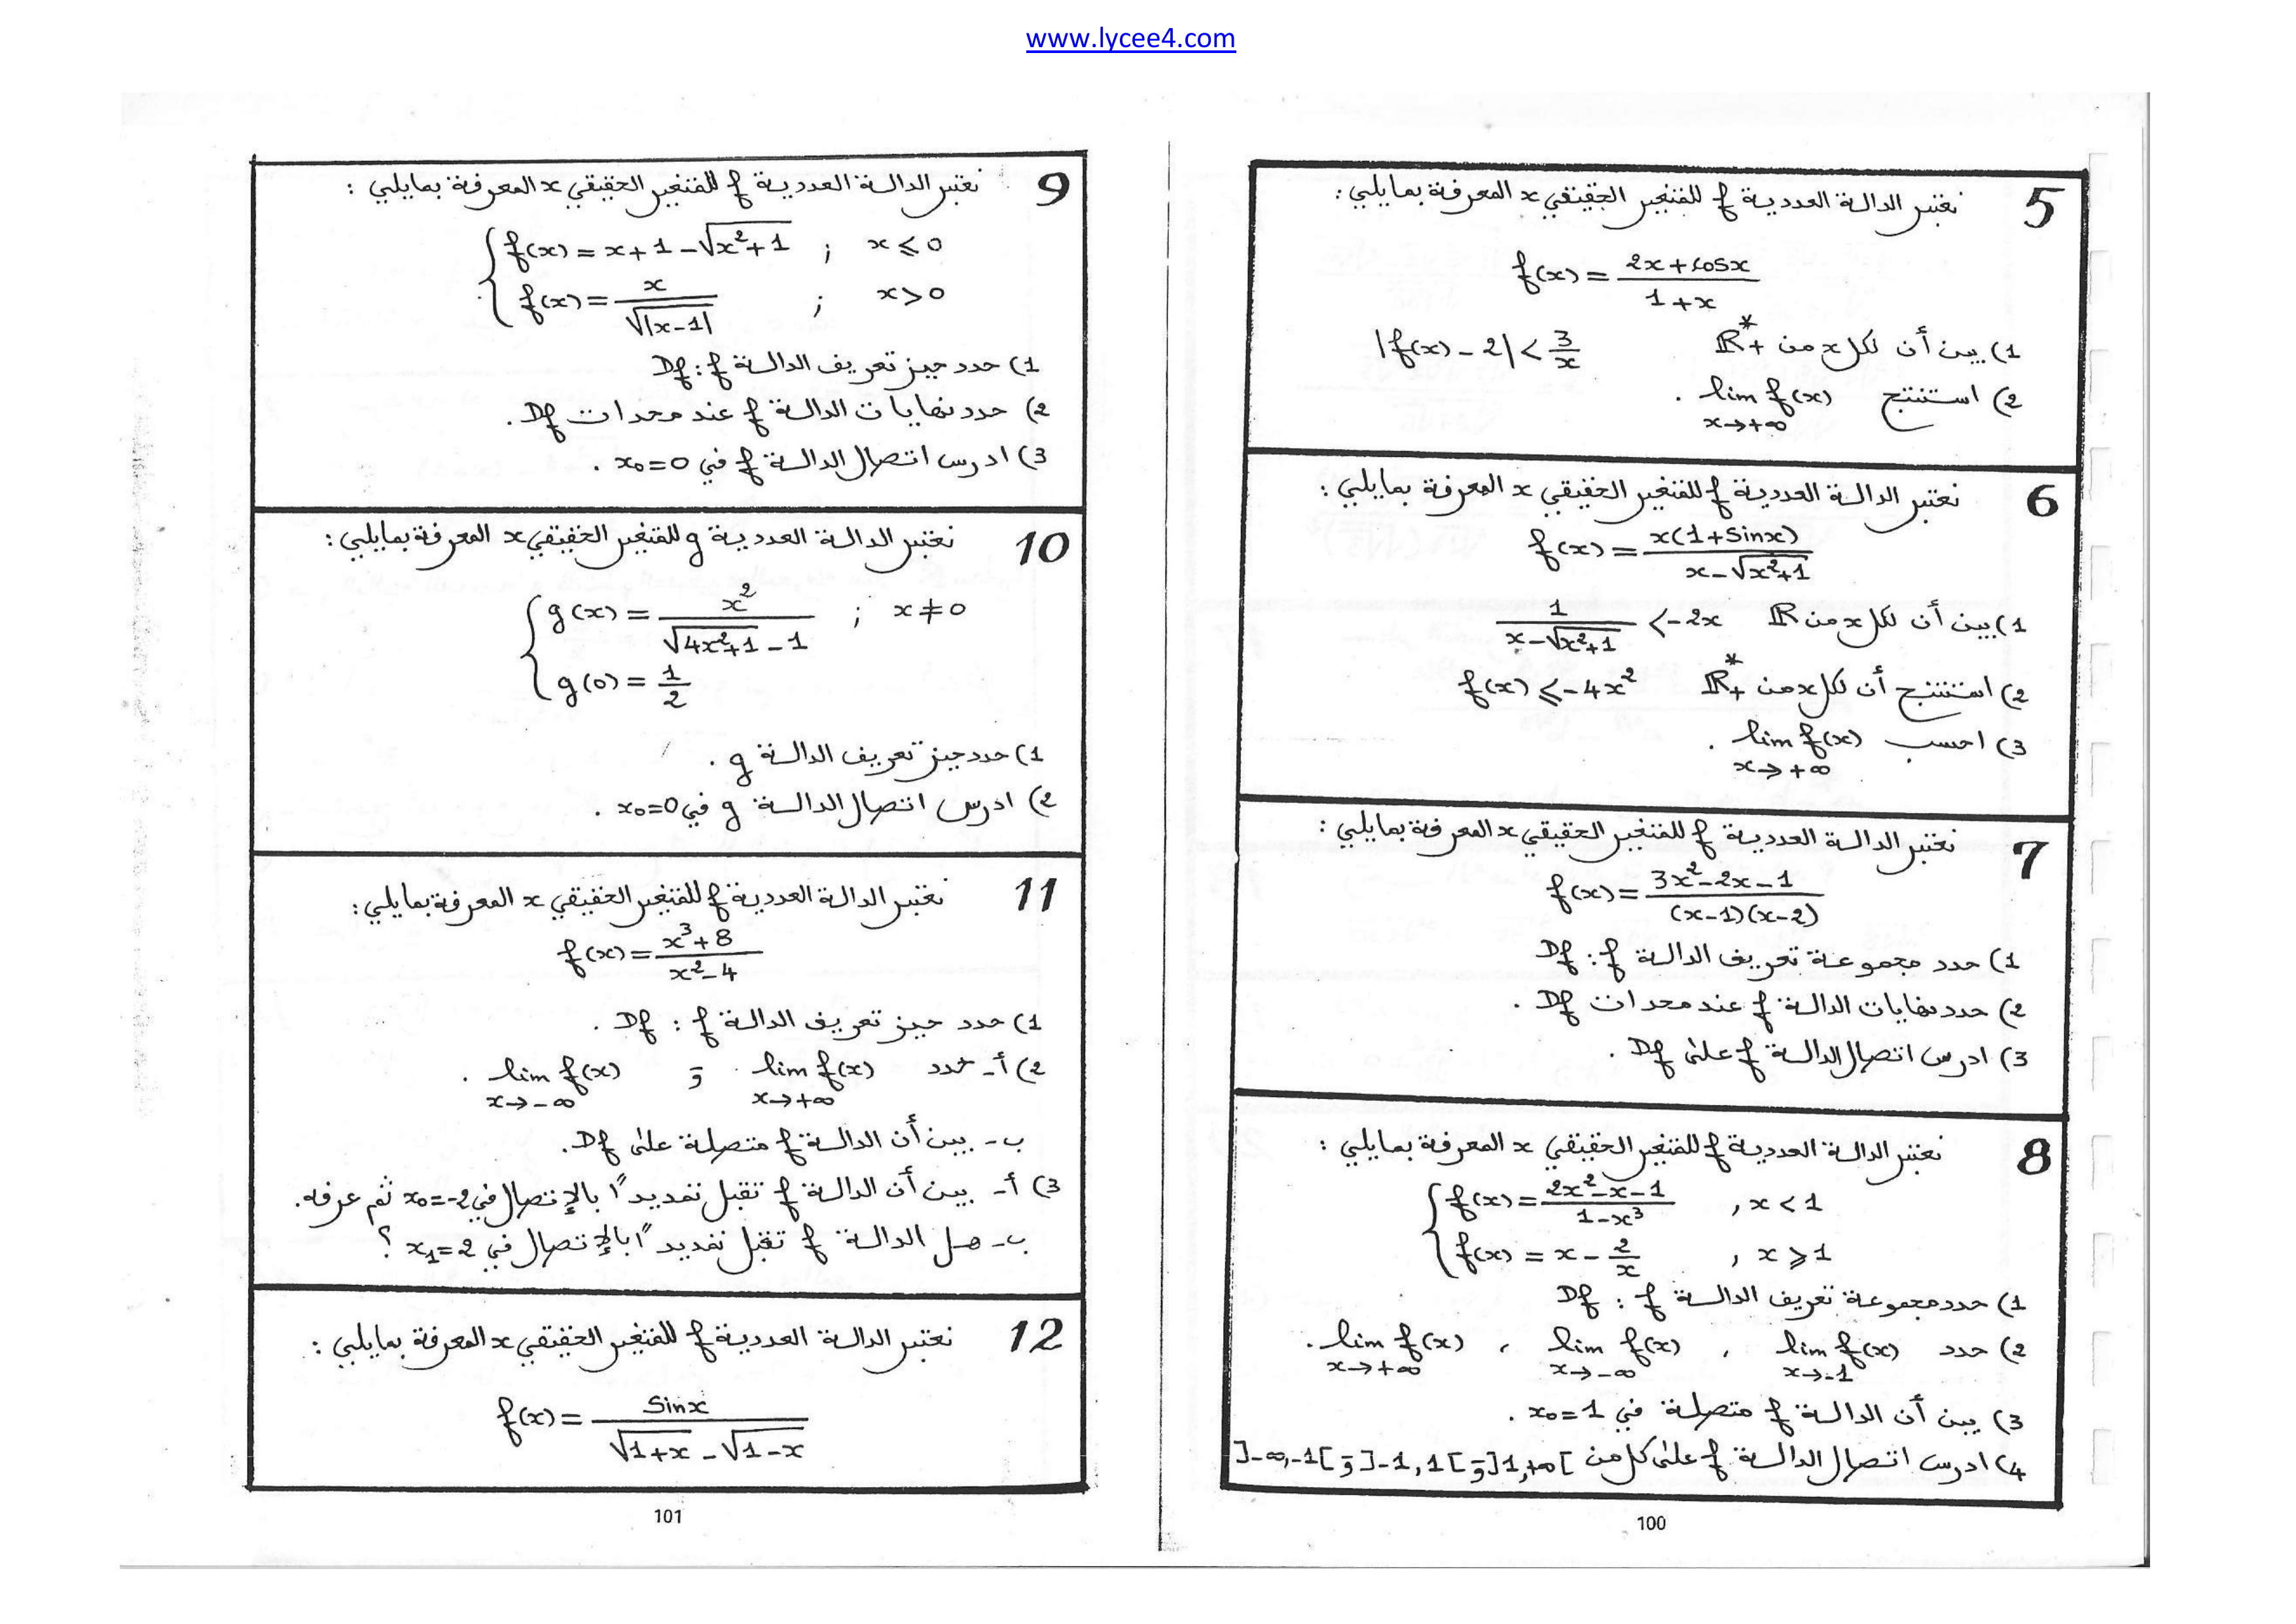 www.lycee4.com
5 نعتبر الدالة العددية f للمتغير الحقيقي x المعرفة بمايلي :
f(x) = (2x + cosx)/(1 + x)
1) بين أن لكل x من ℝ*+ |f(x) - 2| < 3/x
2) استنتج lim f(x) .
x→+∞
6 نعتبر الدالة العددية f للمتغير الحقيقي x المعرفة بمايلي :
f(x) = x(1+Sinx)/(x-√(x²+1))
1) بين أن لكل x من ℝ 1/(x-√(x²+1)) < -2x
2) استنتج أن لكل x من ℝ*+ f(x) ⩽ -4x²
3) احسب lim f(x) .
x→+∞
7 نعتبر الدالة العددية f للمتغير الحقيقي x المعرفة بمايلي :
f(x) = (3x²-2x-1)/((x-1)(x-2))
1) حدد مجموعة تعريف الدالة f : Df
2) حدد نهايات الدالة f عند محدات Df .
3) ادرس اتصال الدالة f على Df .
8 نعتبر الدالة العددية f للمتغير الحقيقي x المعرفة بمايلي :
f(x) = (2x²-x-1)/(1-x³) , x < 1
f(x) = x - 2/x , x ⩾ 1
1) حدد مجموعة تعريف الدالة f : Df
2) حدد lim f(x) , lim f(x) , lim f(x) .
x→-1 x→-∞ x→+∞
3) بين أن الدالة f متصلة في x₀=1 .
4) ادرس اتصال الدالة f على كل من ]-∞,-1[ و ]-1,1[ و ]1,+∞[
100
9 نعتبر الدالة العددية f للمتغير الحقيقي x المعرفة بمايلي :
f(x) = x+1-√(x²+1) ; x ⩽ 0
f(x) = x/√|x-1| ; x > 0
1) حدد حيز تعريف الدالة f : Df
2) حدد نهايات الدالة f عند محدات Df .
3) ادرس اتصال الدالة f في x₀=0 .
10 نعتبر الدالة العددية g للمتغير الحقيقي x المعرفة بمايلي :
g(x) = x²/(√(4x²+1) - 1) ; x ≠ 0
g(0) = 1/2
1) حدد حيز تعريف الدالة g .
2) ادرس اتصال الدالة g في x₀=0 .
11 نعتبر الدالة العددية f للمتغير الحقيقي x المعرفة بمايلي :
f(x) = (x³+8)/(x²-4)
1) حدد حيز تعريف الدالة f : Df .
2) أ- حدد lim f(x) و lim f(x) .
x→+∞ x→-∞
ب- بين أن الدالة f متصلة على Df.
3) أ- بين أن الدالة f تقبل تمديدا بالإتصال في x₀=-2 ثم عرفه.
ب- هل الدالة f تقبل تمديدا بالإتصال في x₁=2 ؟
12 نعتبر الدالة العددية f للمتغير الحقيقي x المعرفة بمايلي :
f(x) = Sinx/(√(1+x) - √(1-x))
101